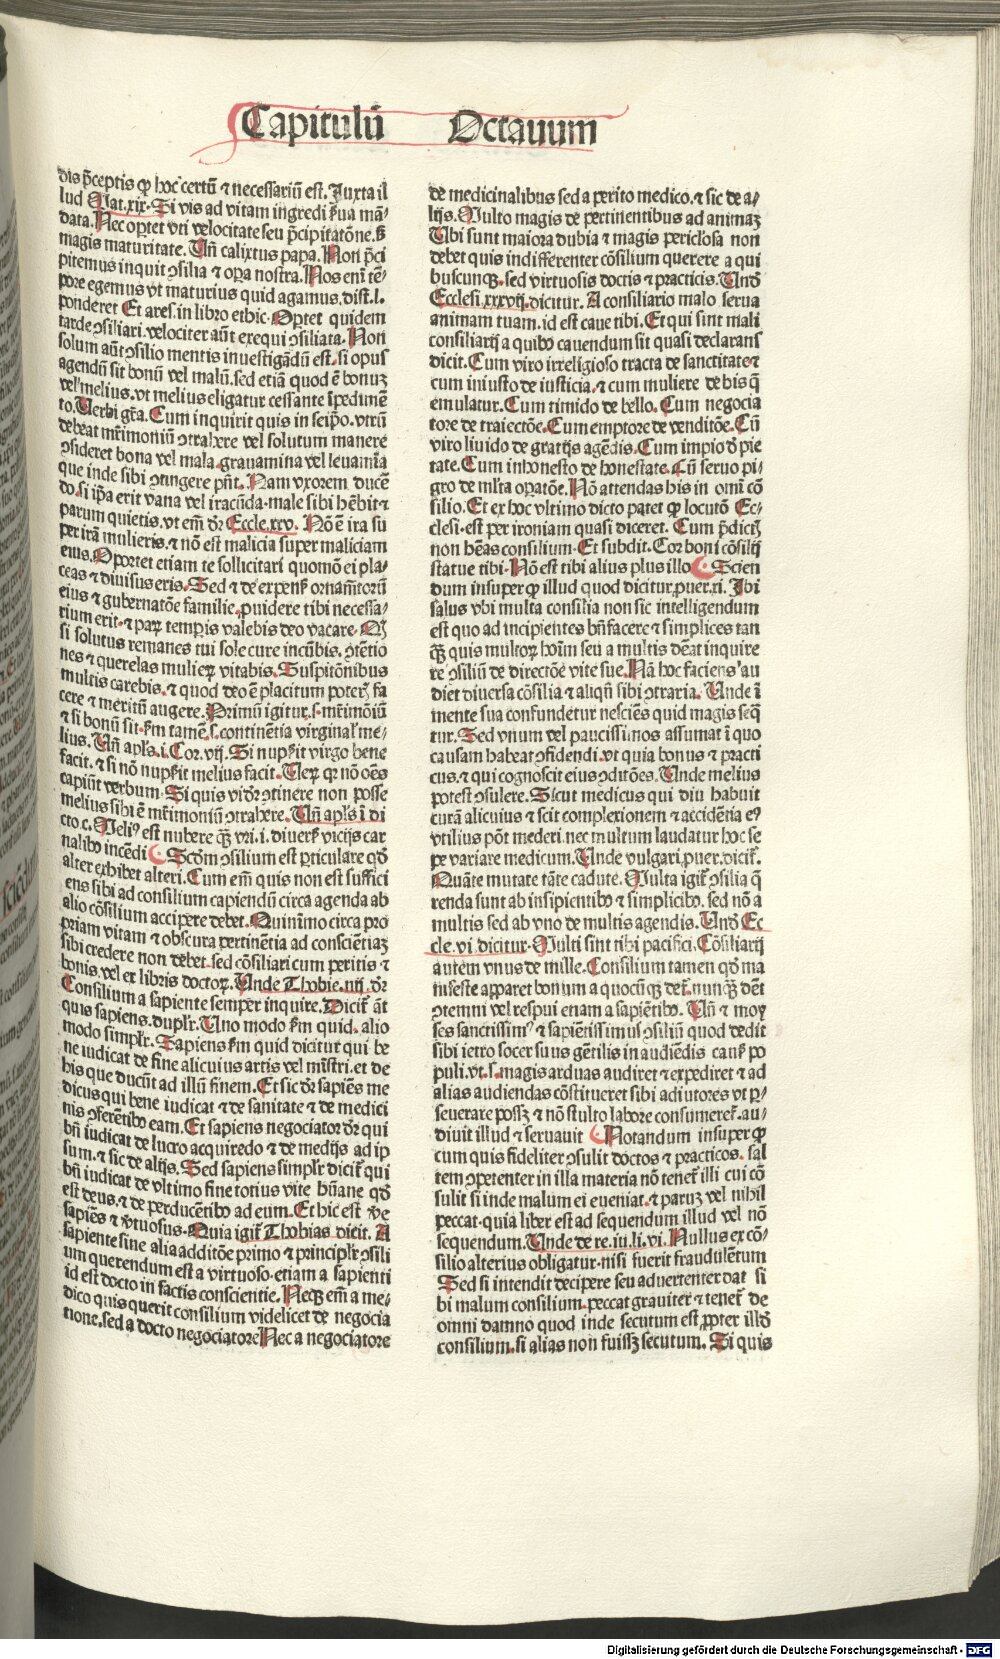 Capitulū Octauum
dis p̄ceptis ꝙ hoc certū ⁊ necessariū est. Juxta il
lud Mat.xix. Si vis ad vitam ingredi ẜua mā⸗
data. Nec optet vti velocitate seu p̄cipitatōne. ẜꝫ
magis maturitate. Un̄ calixtus papa. Non p̄ci
pitemus inquit ꝯsilia ⁊ oꝑa nostra. Nos eni tē⸗
pore egemus vt maturius quid agamus. dist.l.
ponderet Et ares. in libro ethic. Optet quidem
tarde ꝯsiliari. velociter aūt exequi ꝯsiliata. Non
solum aūt ꝯsilio mentis inuestigādū est. si opus
agendū sit bonū vel malū. sed etiā quod ē bonuꝫ
vel melius. vt melius eligatur cessante īpedimē
to. Uerbi gr̄a. Cum inquirit quis in seip̄o. vtrū
debeat mr̄imoniū ꝯtrahere vel solutum manere
ꝯsideret bona vel mala. grauamina vel leuam̄ia
que inde sibi ꝯtingere pn̄t. Nam vxorem ducē
do. si ip̄a erit vana vel iracūda. male sibi hēbit ⁊
parum quietis. vt em̄ dr̄ Eccle.xxv. Nō ē ira su
per irā mulieris. ⁊ nō est malicia super maliciam
eius. Oportet etiam te sollicitari quomō ei pla⸗
ceas ⁊ diuisus eris. Sed ⁊ de expenẜ ornamētorū
eius ⁊ gubernatōe familie. ꝓuidere tibi necessa⸗
rium erit. ⁊ parꝫ temꝑis valebis deo vacare. Qꝫ
si solutus remanes tui sole cure incūbis. ꝯtētio
nes ⁊ querelas mulierꝫ vitabis. Suspitōnibus
multis carebis. ⁊ quod deo ē placitum poterꝫ fa
cere ⁊ meritū augere. Primū igitur. s. mr̄imōiū
⁊ si bonū sit. ẜm tamē. s. continētia virginal̓ me⸗
lius. Un̄ apl̄s.i. Cor.vij. Si nupẜit virgo bene
facit. ⁊ si nō nupẜit melius facit. Uerꝫ qꝛ nō oēs
capiūt verbum. Si quis vidꝫ ꝯtinere non posse
melius sibi ē mr̄imoniū ꝯtrahere. Un̄ apl̄s ī di
cto.c. Meliꝰ est nubere qꝫ vri. i. diuerẜ vicijs car
nalibꝰ incēdi Scdm ꝯsilium est ꝑticulare qd̄
alter exhibet alteri. Cum em̄ quis non est suffici
ens sibi ad consilium capiendū circa agenda ab
alio cōsilium accipere debet. Quinimo circa pro
priam vitam ⁊ obscura pertinētia ad conscientiaꝫ
sibi credere non debet. sed cōsiliari cum peritis ⁊
bonis. vel ex libris doctorꝫ. Unde Thobie.iiij. dr̄
Consilium a sapiente semper inquire. Dicit̄ āt
quis sapiens. duplr̄. Uno modo ẜm quid. alio
modo simplr̄. Sapiens ẜm quid dicitur qui be
ne iudicat de fine alicuius artis vel mīstri. et de
his que ducūt ad illū finem. Et sic dr̄ sapiēs me
dicus qui bene iudicat ⁊ de sanitate ⁊ de medici
nis ꝯferētibꝰ eam. Et sapiens negociator dr̄ qui
bn̄ iudicat de lucro acquiredo ⁊ de medijs ad ip
sum. ⁊ sic de alijs. Sed sapiens simplr̄ dicit̄ qui
bn̄ iudicat de vltimo fine totius vite hūane qd̄
est deus. ⁊ de perducētibꝰ ad eum. Et hic est ve
sapiēs ⁊ v̓tuosus. Quia igit̄ Thobias dicit. A
sapiente sine alia additōe primo ⁊ principlr̄ ꝯsili
um querendum est a virtuoso. etiam a sapienti
id est docto in factis conscientie. Neqꝫ em̄ a me⸗
dico quis querit consilium videlicet de negocia
tione. sed a docto negociatore Nec a negociatore
de medicinalibus sed a perito medico. ⁊ sic de a⸗
lijs. Multo magis de pertinentibus ad animaꝫ
Ubi sunt maiora dubia ⁊ magis pericl̓osa non
debet quis indifferenter cōsilium querere a qui
buscunqꝫ. sed virtuosis doctis ⁊ practicis. Und̄
Ecclesi.xxxvij. dicitur. A consiliario malo serua
animam tuam. id est caue tibi. Et qui sint mali
consiliarij a quibꝰ cauendum sit quasi declarans
dicit. Cum viro irreligioso tracta de sanctitate ⁊
cum iniusto de iusticia. ⁊ cum muliere de his q̄
emulatur. Cum timido de bello. Cum negocia
tore de traiectōe. Cum emptore de venditōe. Cū
viro liuido de gratijs agēdis. Cum impio d̓ pie
tate. Cum inhonesto de honestate. Cū seruo pi⸗
gro de ml̓ta oꝑatōe. Nō attendas his in omī cō
silio. Et ex hoc vltimo dicto patet ꝙ locutō Ec⸗
clesi. est per ironiam quasi diceret. Cum p̄dictꝭ
non hēas consilium. Et subdit. Cor boni cōsilij
statue tibi. Nō est tibi alius plus illo Scien
dum insuper ꝙ illud quod dicitur ꝓuer.xi. Ibi
salus vbi multa consilia non sic intelligendum
est quo ad incipientes bn̄facere ⁊ simplices tan
qꝫ quis multorꝫ hoīm seu a multis deāt inquire
re ꝯsiliū de directōe vite sue. Nā hoc faciens au
diet diuersa cōsilia ⁊ aliqn̄ sibi ꝯtraria. Unde ī
mente sua confundetur nesciēs quid magis seq̄
tur. Sed vnum vel paucissimos assumat ī quo
causam habeat ꝯfidendi. vt quia bonus ⁊ practi
cus. ⁊ qui cognoscit eius ꝯditōes. Unde melius
potest ꝯsulere. Sicut medicus qui diu habuit
curā alicuius ⁊ scit complexionem ⁊ accidētia eꝰ
vtilius pōt mederi. nec multum laudatur hoc se
pe variare medicum. Unde vulgari ꝓuer. dicit̄.
Quāte mutate tāte cadute. Multa igit̄ ꝯsilia q̄
renda sunt ab insipientibꝰ ⁊ simplicibꝰ. sed nō a
multis sed ab vno de multis agendis. Und̄ Ec
cle.vi. dicitur. Multi sint tibi pacifici. Cōsiliarij
autem vnus de mille. Consilium tamen qd̄ ma
nifeste apparet bonum a quocūqꝫ det̄. nunqꝫ debet
ꝯtemni vel respui etiam a sapiētibꝰ. Un̄ ⁊ moy
ses sanctissimꝰ ⁊ sapiētissimus ꝯsiliū quod dedit
sibi ietro socer suus gētilis in audiēdis cauẜ po
puli. vt. s. magis arduas audiret ⁊ expediret ⁊ ad
alias audiendas cōstitueret sibi adiutores vt ꝑ⸗
seuerare possꝫ ⁊ nō stulto labore consumeret̄. au⸗
diuit illud ⁊ seruauit Notandum insuper ꝙ
cum quis fideliter ꝯsulit doctos ⁊ practicos. sal
tem ꝯpetenter in illa materia nō tenet̄ illi cui cō
sulit si inde malum ei eueniat. ⁊ paruꝫ vel nihil
peccat. quia liber est ad sequendum illud vel nō
sequendum. Unde de re.iu.li.vi. Nullus ex cō⸗
silio alterius obligatur. nisi fuerit fraudulētum
Sed si intendit decipere seu aduertenter dat si
bi malum consilium. peccat grauiter ⁊ tenet̄ de
omni damno quod inde secutum est ꝓpter illd̄
consilium. si alias non fuissꝫ secutum. Si quis
Digitalisierung gefördert durch die Deutsche Forschungsgemeinschaft - DFG